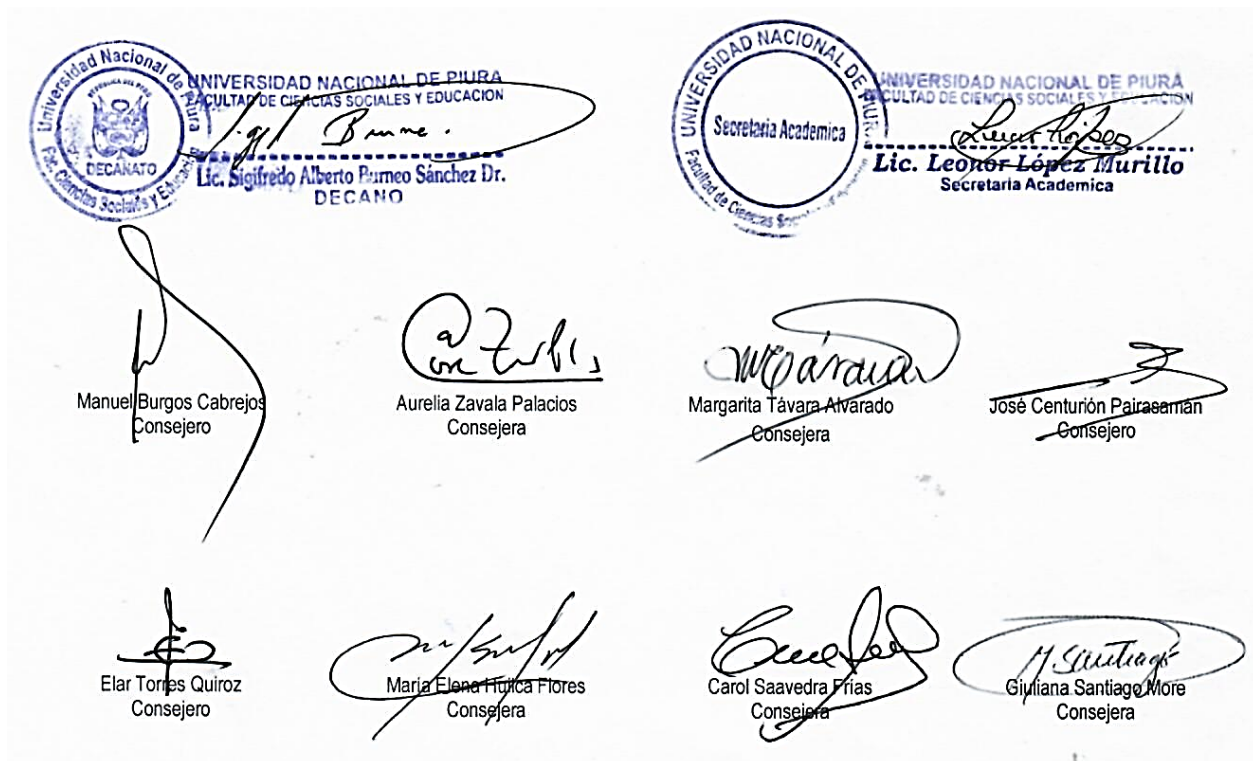 Universidad Nacional de Piura
Fac. Ciencias Sociales y Educación
REPUBLICA DEL PERU
DECANATO
UNIVERSIDAD NACIONAL DE PIURA
FACULTAD DE CIENCIAS SOCIALES Y EDUCACION
Lic. Sigifredo Alberto Burneo Sánchez Dr.
DECANO
UNIVERSIDAD NACIONAL DE PIURA
Secretaria Academica
Facultad de Ciencias
UNIVERSIDAD NACIONAL DE PIURA
FACULTAD DE CIENCIAS SOCIALES Y EDUCACION
Lic. Leonor López Murillo
Secretaria Academica
Manuel Burgos Cabrejos
Consejero
Aurelia Zavala Palacios
Consejera
Margarita Távara Alvarado
Consejera
José Centurión Pairasamán
Consejero
Elar Torres Quiroz
Consejero
María Elena Huilca Flores
Consejera
Carol Saavedra Frías
Consejera
M Santiago
Giuliana Santiago More
Consejera